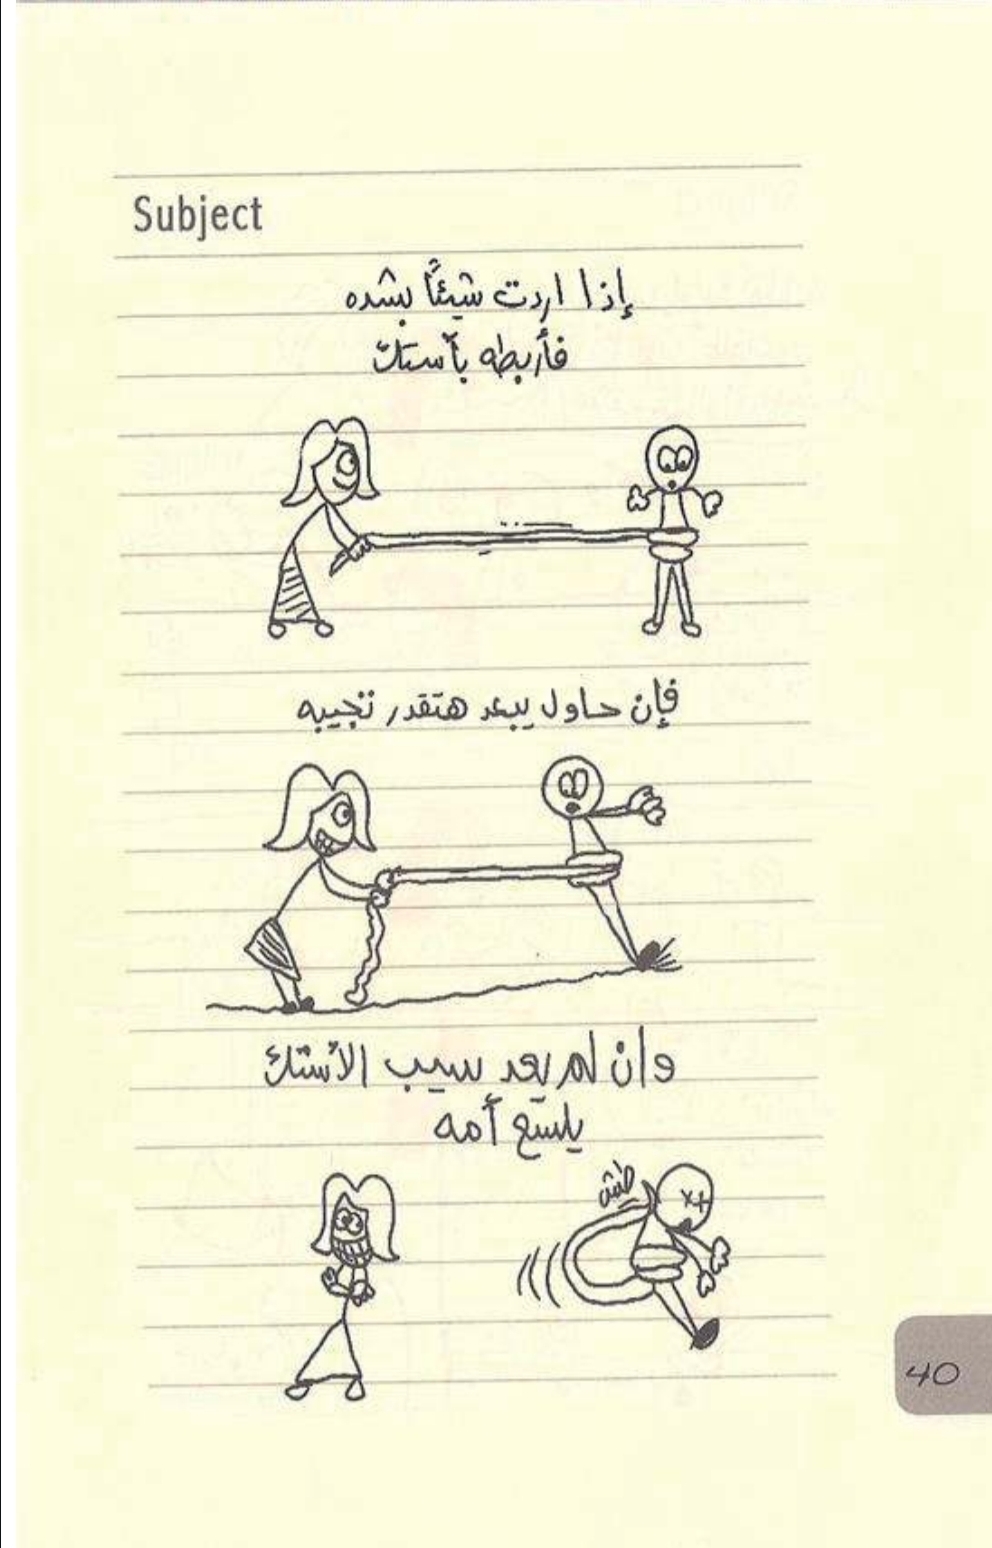 Subject
إذا اردت شيئاً بشده
فأربطه بأستك
فإن حاول يبعد هتقدر تجيبه
وان لم يعد سيب الأستك
يلسع أمه
طش
40